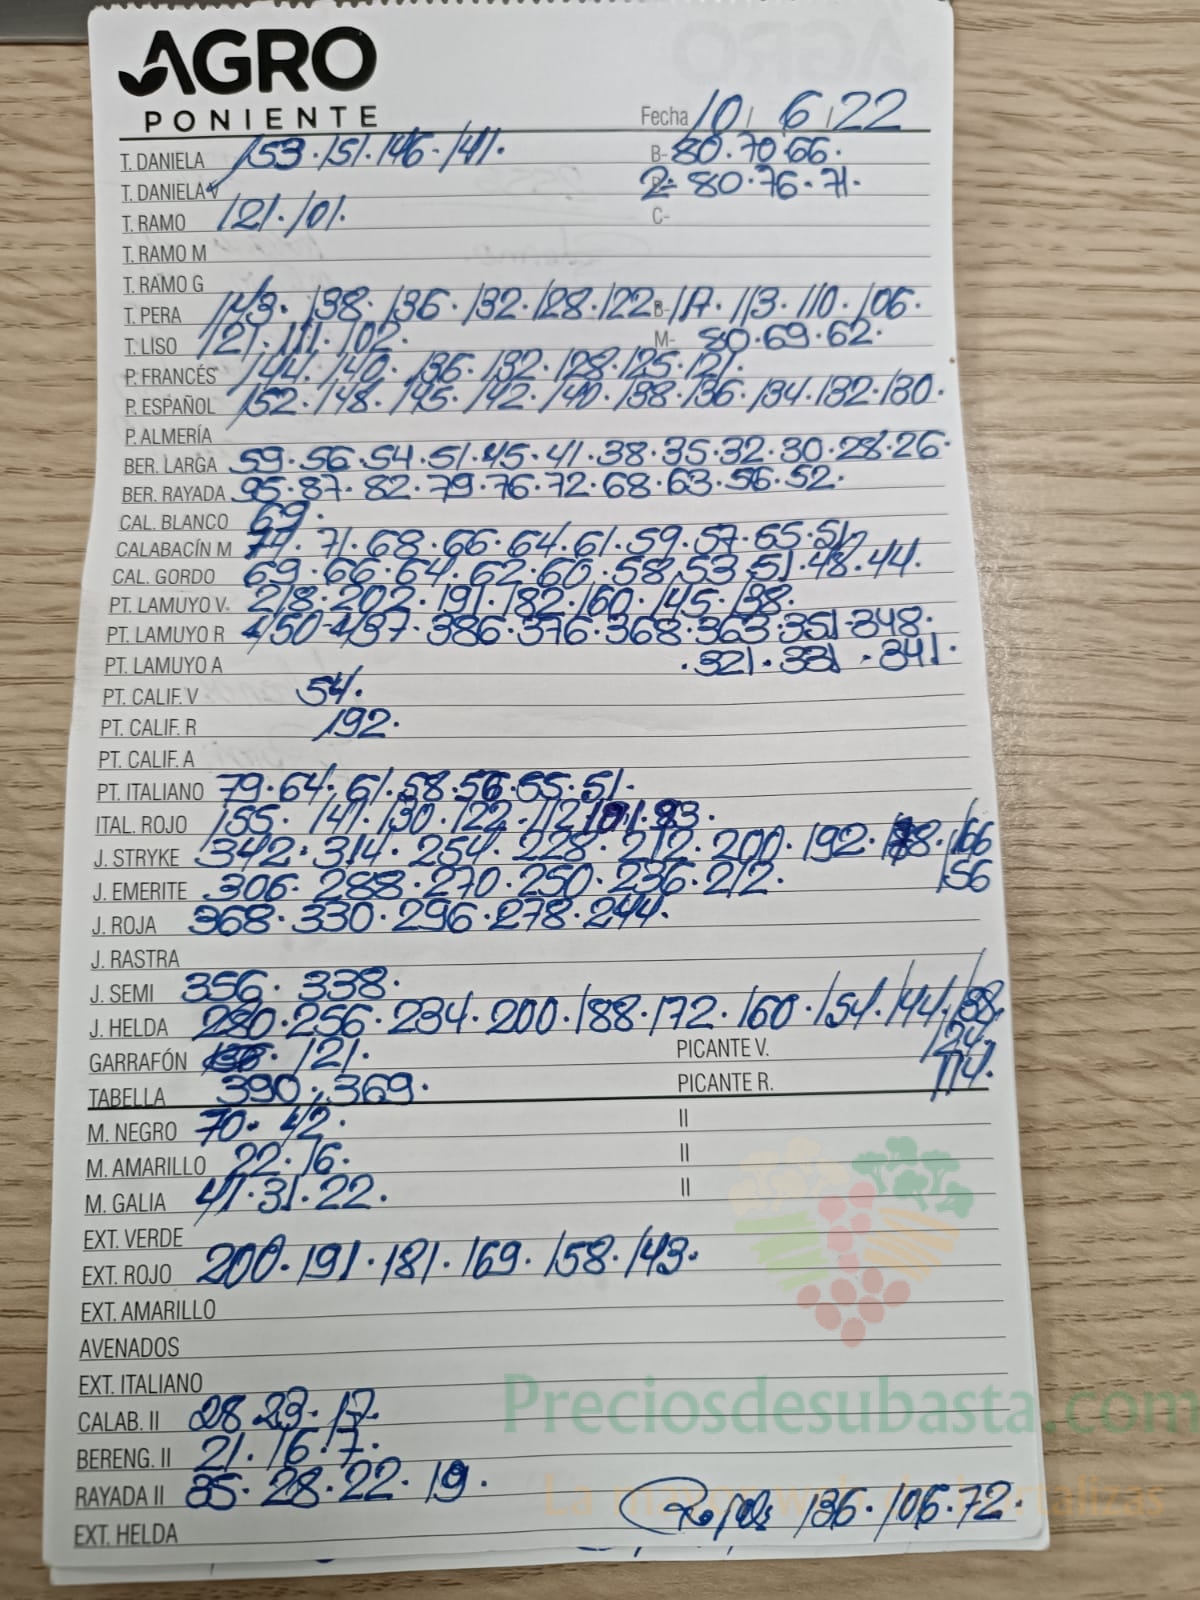 AGRO
PONIENTE
Fecha 10/6/22
T. DANIELA 153.151.146.141. B- 80.70.66.
T. DANIELA V 2- 80.76.71.
T. RAMO 121.101. C-
T. RAMO M
T. RAMO G
T. PERA 143.138.136.132.128.122 B-117.113.110.106.
T. LISO 121.111.102. M- 80.69.62.
P. FRANCÉS 144.140.136.132.128.125.121.
P. ESPAÑOL 152.148.145.142.140.138.136.134.132.130.
P. ALMERÍA
BER. LARGA 59.56.54.51.45.41.38.35.32.30.28.26.
BER. RAYADA 95.87.82.79.76.72.68.63.56.52.
CAL. BLANCO 69.
CALABACÍN M 74.71.68.66.64.61.59.57.55.51.
CAL. GORDO 69.66.64.62.60.58.53.51.48.44.
PT. LAMUYO V. 218.202.191.182.160.145.138.
PT. LAMUYO R 450.437.386.376.368.363.351.348.
PT. LAMUYO A .321.331.341.
PT. CALIF. V 54.
PT. CALIF. R 192.
PT. CALIF. A
PT. ITALIANO 79.64.61.58.56.55.51.
ITAL. ROJO 155.141.130.122.112.101.93.
J. STRYKE 342.314.254.228.212.200.192.188.166
J. EMERITE 306.288.270.250.236.212. 156
J. ROJA 368.330.296.278.244.
J. RASTRA
J. SEMI 356.338.
J. HELDA 280.256.234.200.188.172.160.154.144.138.
GARRAFÓN 121. PICANTE V. 124.
TABELLA 390.369. PICANTE R. 114.
M. NEGRO 70.42. II
M. AMARILLO 22.16. II
M. GALIA 41.31.22. II
EXT. VERDE
EXT. ROJO 200.191.181.169.158.143.
EXT. AMARILLO
AVENADOS
EXT. ITALIANO
Preciosdesubasta.com
CALAB. II 28.23.17.
BERENG. II 21.16.7.
RAYADA II 35.28.22.19.
La hortalizas
EXT. HELDA 136.106.72.